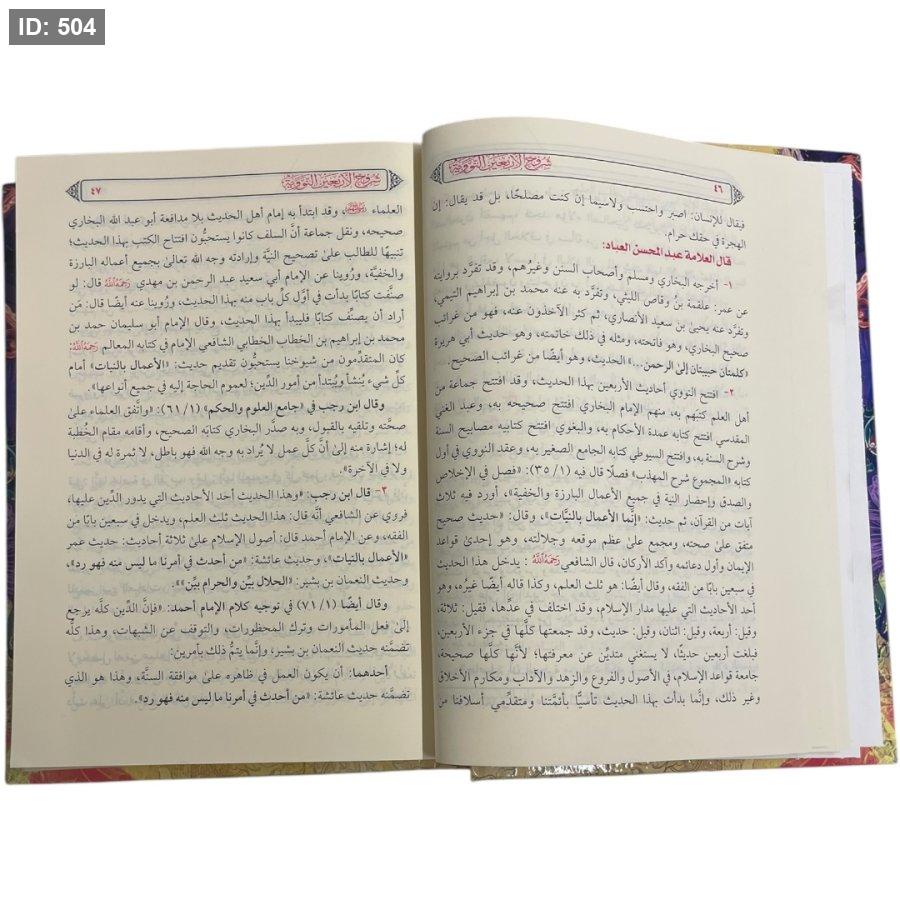 ID: 504
شروح الأربعين النووية
٤٦
فيقال للإنسان: اصبر واحتسب ولاسيما إن كنت مصلحًا، بل قد يقال: إن
الهجرة في حقك حرام.
قال العلامة عبد المحسن العباد:
١- أخرجه البخاري ومسلم وأصحاب السنن وغيرُهم، وقد تفرَّد بروايته
عن عمر: علقمة بنُ وقاص الليثي، وتفرَّد به عنه محمد بن إبراهيم التيمي،
وتفرَّد عنه يحيىٰ بن سعيد الأنصاري، ثم كثر الآخذون عنه، فهو من غرائب
صحيح البخاري، وهو فاتحته، ومثله في ذلك خاتمته، وهو حديث أبي هريرة
«كلمتان حبيبتان إلىٰ الرحمن...» الحديث، وهو أيضًا من غرائب الصحيح.
٢- افتتح النووي أحاديث الأربعين بهذا الحديث، وقد افتتح جماعة من
أهل العلم كتبَهم به، منهم الإمام البخاري افتتح صحيحه به، وعبد الغني
المقدسي افتتح كتابه عمدة الأحكام به، والبغوي افتتح كتابيه مصابيح السنة
وشرح السنة به، وافتتح السيوطي كتابه الجامع الصغير به، وعقد النووي في أول
كتابه «المجموع شرح المهذب» فصلًا قال فيه (١/ ٣٥): «فصل في الإخلاص
والصدق وإحضار النية في جميع الأعمال البارزة والخفية»، أورد فيه ثلاث
آيات من القرآن، ثم حديث: «إنَّما الأعمال بالنيَّات»، وقال: «حديث صحيح
متفق علىٰ صحته، ومجمع علىٰ عظم موقعه وجلالته، وهو إحدىٰ قواعد
الإيمان وأول دعائمه وآكد الأركان، قال الشافعي رَحِمَهُ ٱللَّهُ : يدخل هذا الحديث
في سبعين بابًا من الفقه، وقال أيضًا: هو ثلث العلم، وكذا قاله أيضًا غيره، وهو
أحد الأحاديث التي عليها مدار الإسلام، وقد اختلف في عدِّها، فقيل: ثلاثة،
وقيل: أربعة، وقيل: اثنان، وقيل: حديث، وقد جمعتها كلَّها في جزء الأربعين،
فبلغت أربعين حديثًا، لا يستغني متديِّن عن معرفتها؛ لأنَّها كلَّها صحيحة،
جامعة قواعد الإسلام، في الأصول والفروع والزهد والآداب ومكارم الأخلاق
وغير ذلك، وإنَّما بدأت بهذا الحديث تأسيًّا بأئمَّتنا ومتقدِّمي أسلافنا من
شروح الأربعين النووية
٤٧
العلماء، وقد ابتدأ به إمام أهل الحديث بلا مدافعة أبو عبد الله البخاري
صحيحه، ونقل جماعة أنَّ السلف كانوا يستحبُّون افتتاح الكتب بهذا الحديث؛
تنبيهًا للطالب علىٰ تصحيح النيَّة وإرادته وجه الله تعالىٰ بجميع أعماله البارزة
والخفيَّة، ورُوينا عن الإمام أبي سعيد عبد الرحمن بن مهدي رَحِمَهُ ٱللَّهُ قال: لو
صنَّفت كتابًا بدأت في أوَّل كلِّ باب منه بهذا الحديث، ورُوينا عنه أيضًا قال: مَن
أراد أن يصنِّف كتابًا فليبدأ بهذا الحديث، وقال الإمام أبو سليمان حمد بن
محمد بن إبراهيم بن الخطاب الخطابي الشافعي الإمام في كتابه المعالم رَحِمَهُ ٱللَّهُ:
كان المتقدِّمون من شيوخنا يستحبُّون تقديم حديث: «الأعمال بالنيات» أمام
كلِّ شيء يُنشأ ويُبتدأ من أمور الدِّين؛ لعموم الحاجة إليه في جميع أنواعها».
وقال ابن رجب في «جامع العلوم والحكم» (١/ ٦١): «واتَّفق العلماء علىٰ
صحَّته وتلقيه بالقبول، وبه صدَّر البخاري كتابَه الصحيح، وأقامه مقام الخُطبة
له؛ إشارة منه إلىٰ أنَّ كلَّ عمل لا يُراد به وجه الله فهو باطل، لا ثمرة له في الدنيا
ولا في الآخرة».
٣- قال ابن رجب: «وهذا الحديث أحد الأحاديث التي يدور الدِّين عليها،
فروي عن الشافعي أنَّه قال: هذا الحديث ثلث العلم، ويدخل في سبعين بابًا من
الفقه، وعن الإمام أحمد قال: أصول الإسلام علىٰ ثلاثة أحاديث: حديث عمر
«الأعمال بالنيات»، وحديث عائشة: «من أحدث في أمرنا ما ليس منه فهو رد»،
وحديث النعمان بن بشير: «الحلال بيِّن والحرام بيِّن»».
وقال أيضًا (١/ ٧١) في توجيه كلام الإمام أحمد: «فإنَّ الدِّين كلَّه يرجع
إلىٰ فعل المأمورات وترك المحظورات، والتوقف عن الشبهات، وهذا كلُّه
تضمَّنه حديث النعمان بن بشير، وإنَّما يتمُّ ذلك بأمرين:
أحدهما: أن يكون العمل في ظاهره علىٰ موافقة السنَّة، وهذا هو الذي
تضمَّنه حديث عائشة: «من أحدث في أمرنا ما ليس منه فهو رد».